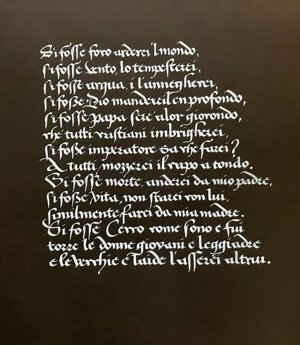 Si fosse foco arderei 'l mondo,
si fosse vento, lo tempesterei,
si fosse acqua, i' l'annegherei,
si fosse Dio mandereil en profondo,
si fosse papa sere' alor giocondo,
che tutti cristiani imbrigherei,
si fosse imperatore sa che farei?
A tutti mozzerei il capo a tondo.
Si fosse morte, anderei da mio padre,
si fosse vita, non starei con lui,
similmente farei da mia madre.
Si fosse Cecco come sono e fui
torre' le donne giovani e leggiadre
e le vecchie e laide l'asserei altrui.